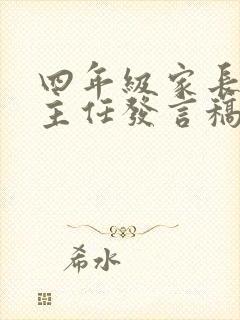 四年級家長
主任發言稿
希水